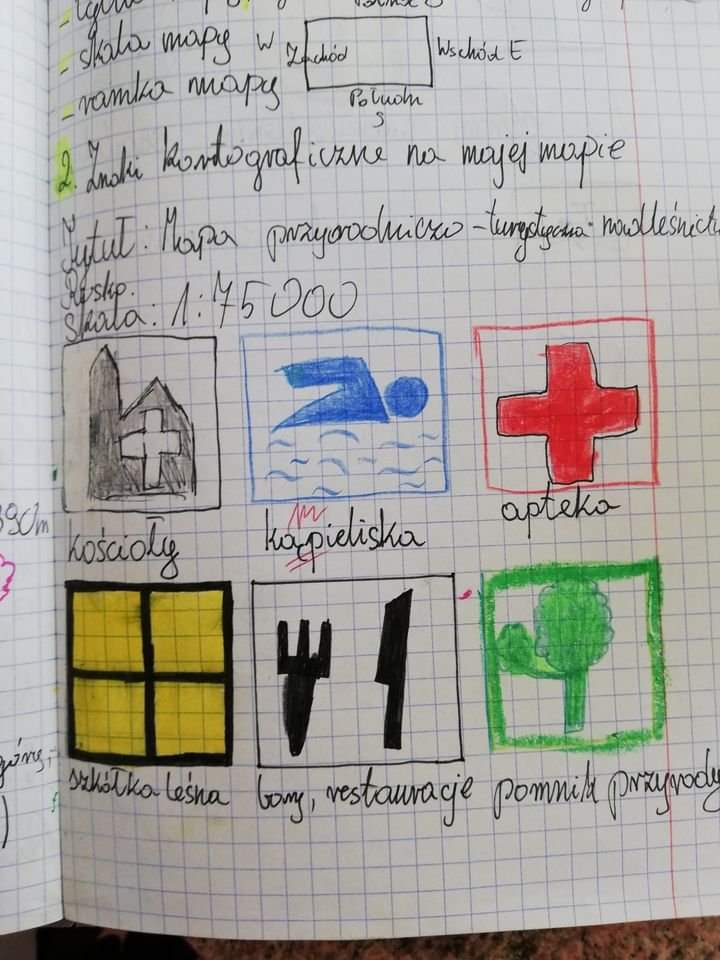 - skala mapy W Zachód Wschód E
- ramka mapy
Połudn
S
2. Znaki kartograficzne na mojej mapie
Tytuł: Mapa przyrodniczo - turystyczna nadleśnictw
Skala: 1:75000
kościoły
kąpieliska
apteka
szkółka leśna
bary, restauracje
pomnik przyrody